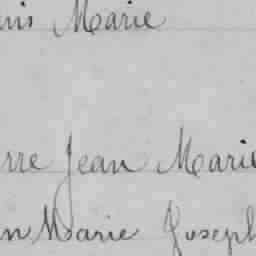 uis Marie
rre Jean Marie
n Marie Joseph